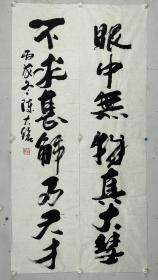 眼中無物真大
不求甚解乃天才
丙戌冬陳大